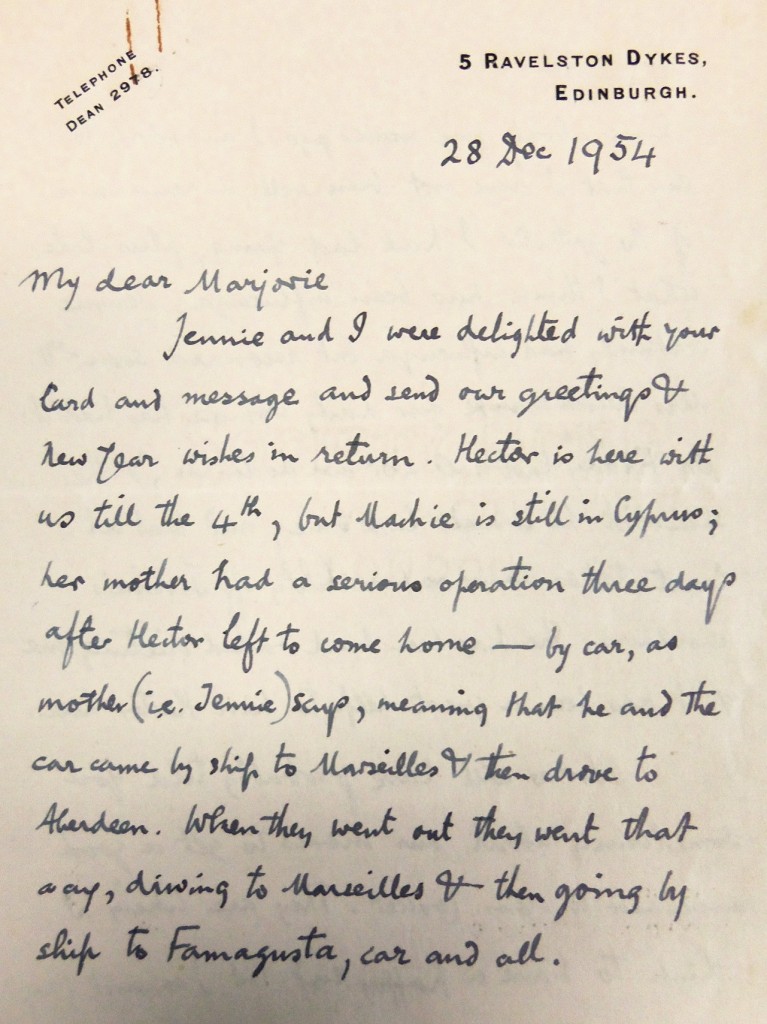 TELEPHONE
DEAN 2978.
5 RAVELSTON DYKES,
EDINBURGH.
28 Dec 1954
My dear Marjorie
Jennie and I were delighted with your
Card and message and send our greetings &
New Year wishes in return. Hector is here with
us till the 4th, but Machie is still in Cyprus;
her mother had a serious operation three days
after Hector left to come home — by car, as
mother (i.e. Jennie) says, meaning that he and the
car came by ship to Marseilles & then drove to
Aberdeen. When they went out they went that
way, driving to Marseilles & then going by
ship to Famagusta, car and all.